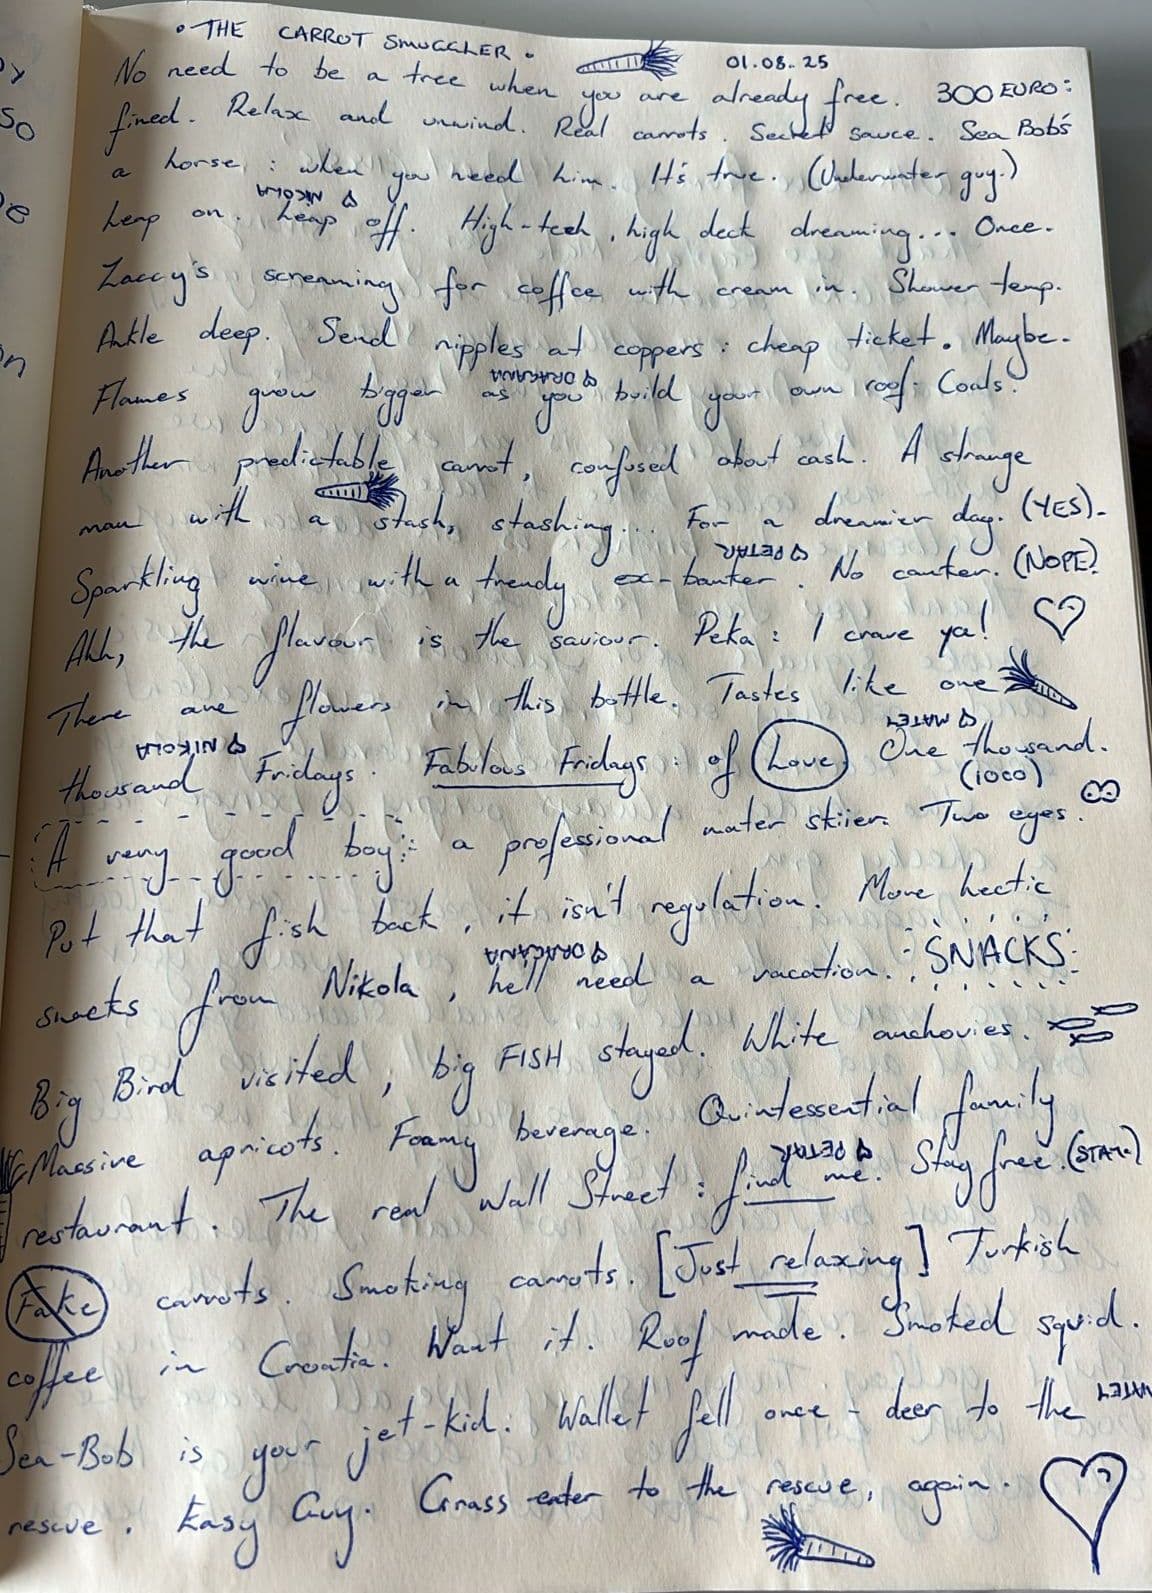 • THE CARROT SMUGGLER •
01.08.25
No need to be a tree when you are already free. 300 EURO:
fined. Relax and unwind. Real carrots. Secret sauce. Sea Bob's
a horse : when you need him. It's true. (Underwater guy.)
♡ NIKOLA
Leap on. Leap off. High-tech, high deck dreaming... Once.
Zaccy's screaming for coffee with cream in. Shower temp.
Ankle deep. Send nipples at coppers : cheap ticket. Maybe.
♡ DRAGANA
Flames grow bigger as you build your own roof. Coals.
Another predictable carrot, confused about cash. A strange
man with a stash, stashing... For a dreamier day. (YES).
♡ PETAR
Sparkling wine with a trendy ex-banker. No canker. (NOPE)
Ahh, the flavour is the saviour. Peka : I crave ya! ♡
There are flowers in this bottle. Tastes like one
♡ NIKOLA ♡ MATEJ
thousand Fridays. Fabulous Fridays : of Love One thousand.
(1000)
A very good boy : a professional water skiier. Two eyes.
Put that fish back, it isn't regulation. More hectic
♡ DRAGANA
snacks from Nikola, he'll need a vacation. SNACKS
Big Bird visited, big FISH stayed. White anchovies.
Massive apricots. Foamy beverage. Quintessential family
♡ PETAR
restaurant. The real Wall Street : find me. Stay free.
Fake carrots. Smoking carrots. [Just relaxing] Turkish
coffee in Croatia. Want it. Roof made. Smoked squid.
MATEJ
Sea-Bob is your jet-kid. Wallet fell once - deer to the
rescue. Easy Guy. Grass eater to the rescue, again. ♡